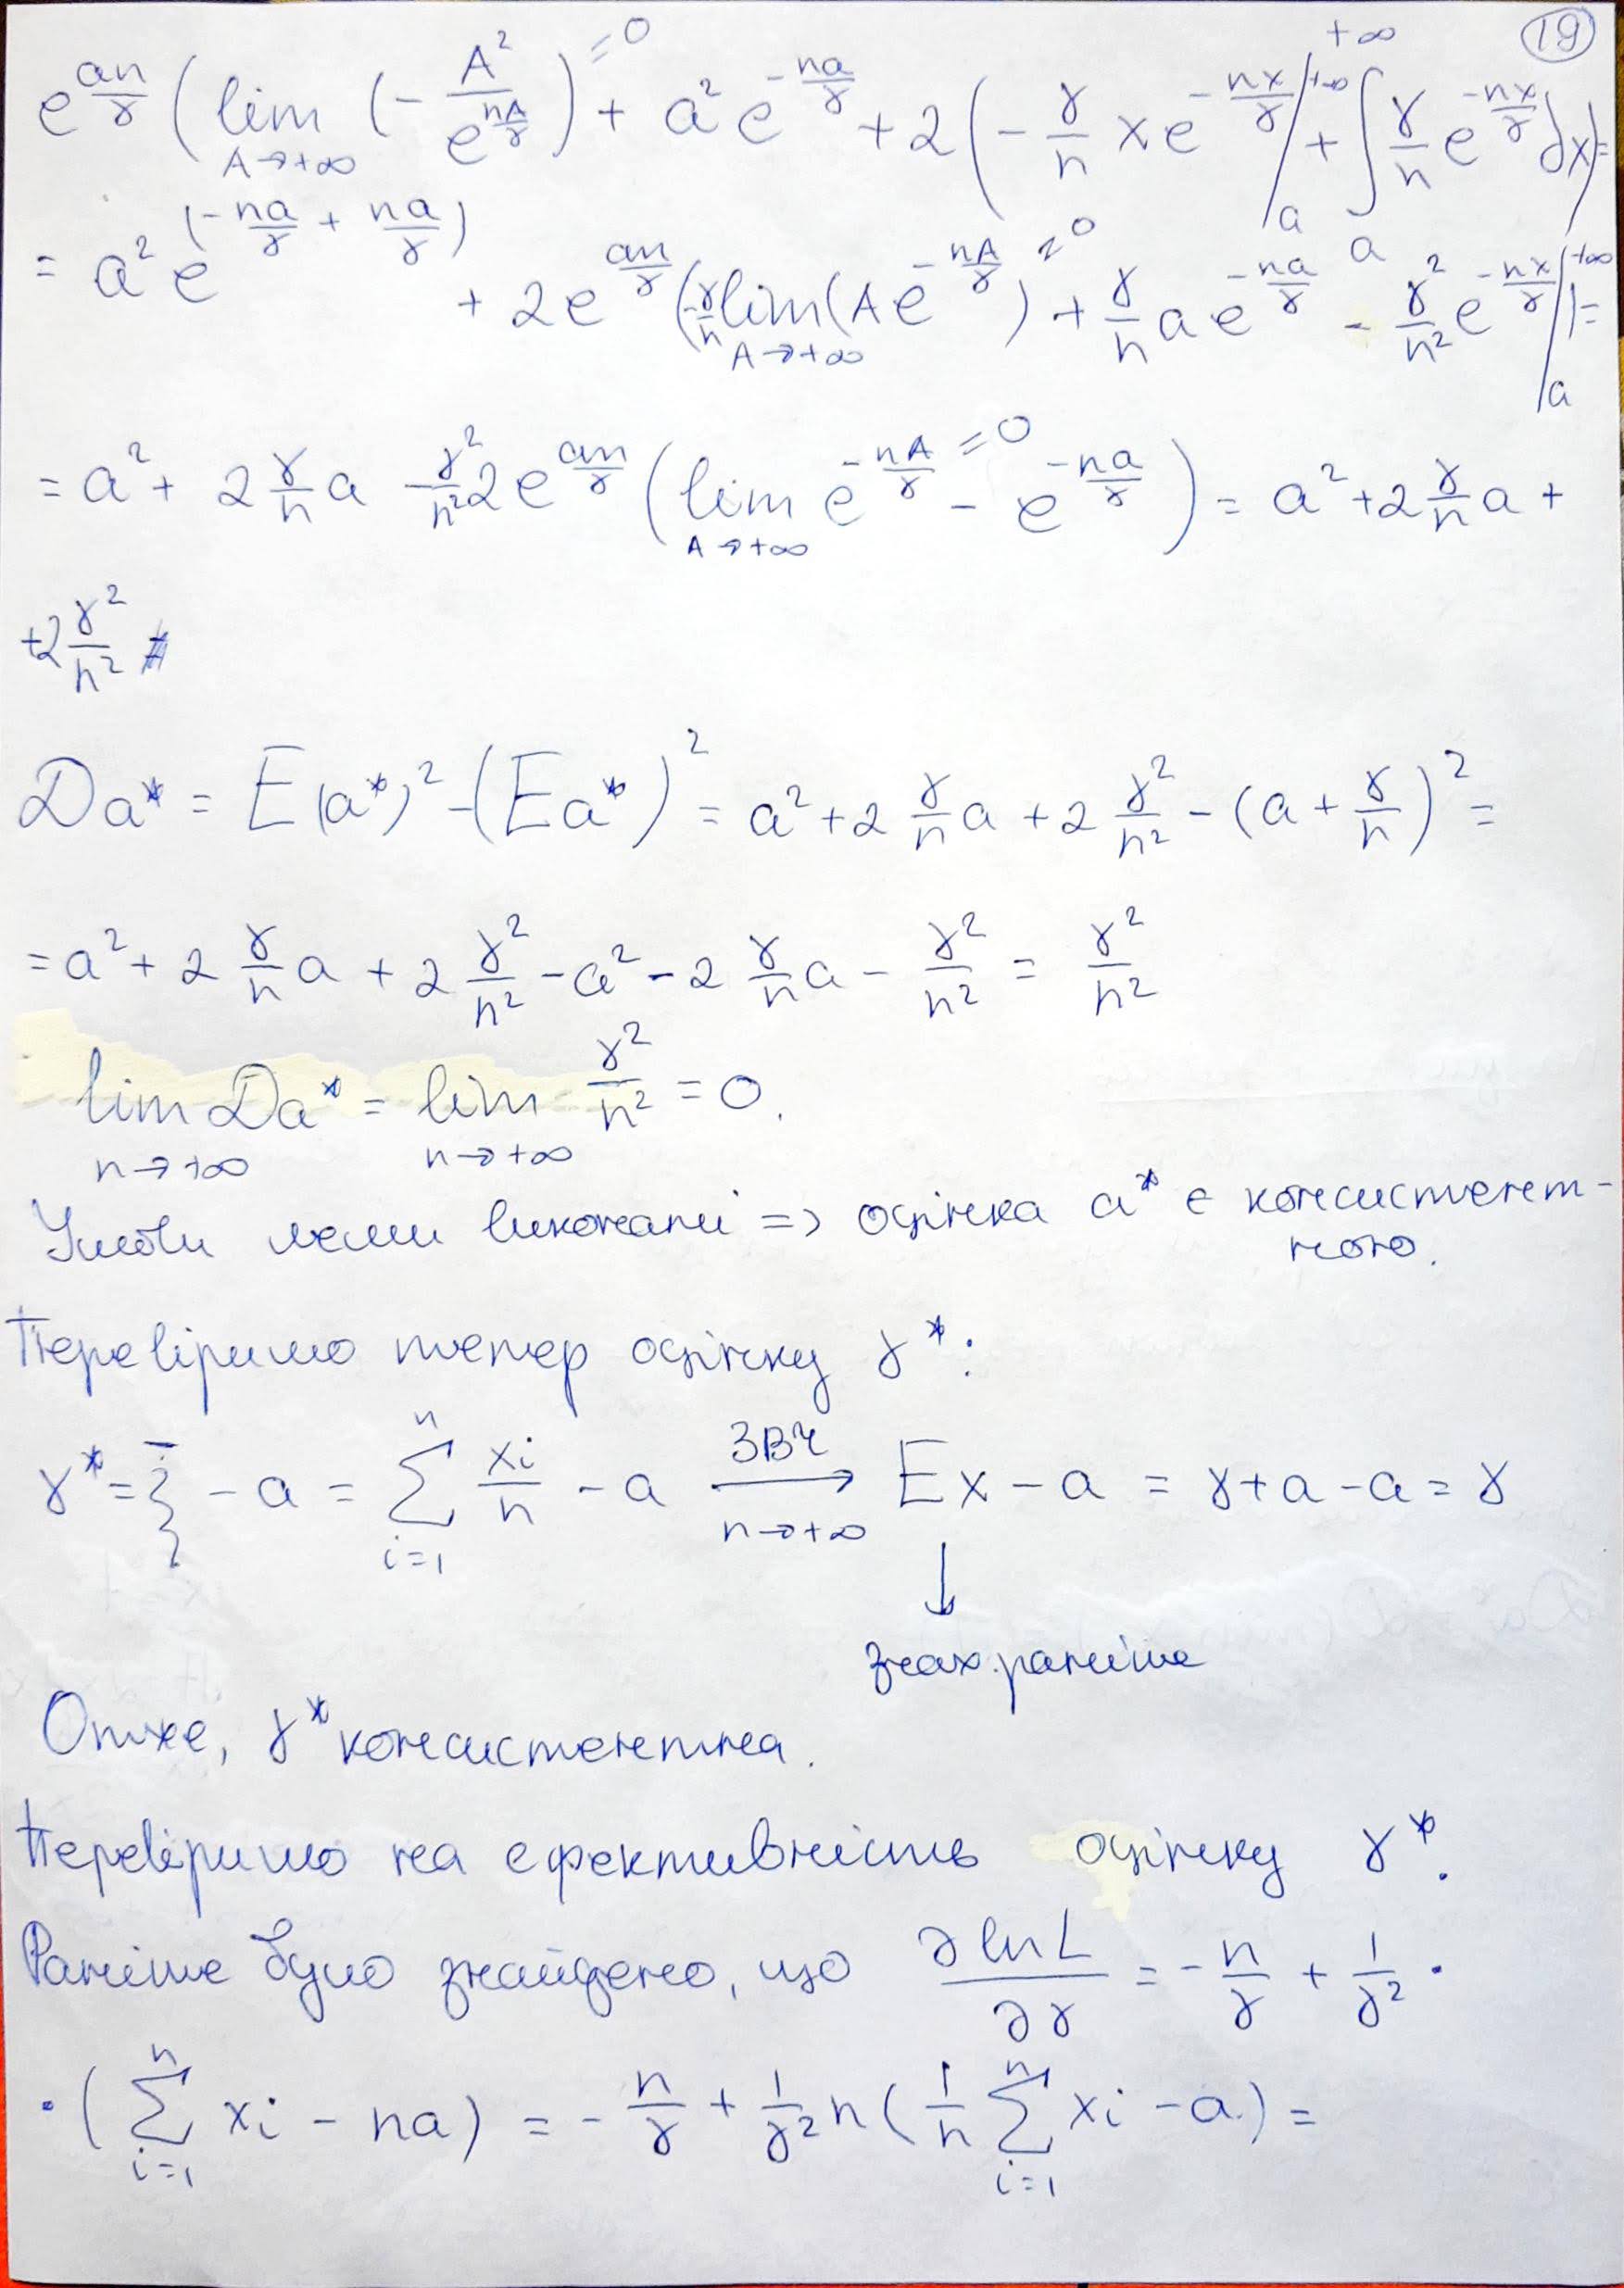 19
e^{an/γ} (lim_{A→+∞} (-A²/e^{nA/γ})^{=0} + a² e^{-na/γ} + 2(-γ/n x e^{-nx/γ} |_a^{+∞} + ∫_a^{+∞} γ/n e^{-nx/γ} dx) =
= a² e^{(-na/γ + na/γ)} + 2e^{an/γ} (-γ/n lim_{A→+∞} (A e^{-nA/γ})^{=0} + γ/n a e^{-na/γ} - γ²/n² e^{-nx/γ} |_a^{+∞}) =
= a² + 2 γ/n a - γ²/n² 2e^{an/γ} (lim_{A→+∞} e^{-nA/γ}^{=0} - e^{-na/γ}) = a² + 2 γ/n a +
+2 γ²/n²
Da* = E(a*)² - (Ea*)² = a² + 2 γ/n a + 2 γ²/n² - (a + γ/n)² =
= a² + 2 γ/n a + 2 γ²/n² - a² - 2 γ/n a - γ²/n² = γ²/n²
lim_{n→+∞} Da* = lim_{n→+∞} γ²/n² = 0.
Умови леми виконані => оцінка a* є консистент-
ною.
Перевіримо тепер оцінку γ*:
γ* = ξ̄ - a = Σ_{i=1}^{n} xi/n - a →^{ЗВЧ}_{n→+∞} Ex - a = γ + a - a = γ
↓
знах. раніше
Отже, γ* консистентна.
Перевіримо на ефективність оцінку γ*.
Раніше було знайдено, що ∂lnL/∂γ = -n/γ + 1/γ² ·
· (Σ_{i=1}^{n} xi - na) = -n/γ + 1/γ² n (1/n Σ_{i=1}^{n} xi - a) =